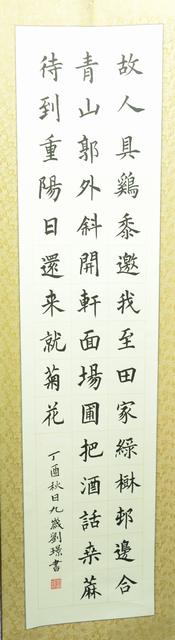 故人具鷄黍邀我至田家綠樹邨邊合
青山郭外斜開軒面場圃把酒話桑蔴
待到重陽日還来就菊花
丁酉秋日九歲劉璟書